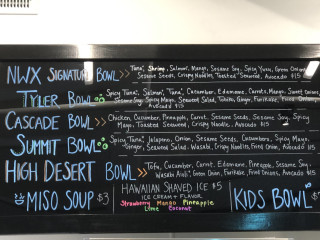 NWX SIGNATURE BOWL >> "Tuna", Shrimp, Salmon, Mango, Sesame Soy, Spicy Yuzu, Green Onion,
Sesame Seeds, Crispy Noodles, Toasted Seaweed, Avocado $15
TYLER BOWL Spicy Tuna, Salmon, "Tuna", Cucumber, Edamame, Carrots, Mango, Sweet Onions,
Sesame Soy, Spicy Mayo, Seaweed Salad, Tobiko, Ginger, Furikake, Fried Onions,
Avocado $15
CASCADE BOWL >> Chicken, Cucumber, Pineapple, Carrot, Sesame Seeds, Sesame Soy, Spicy
Mayo, Toasted Seaweed, Crispy Noodles, Avocado $15
SUMMIT BOWL Spicy "Tuna", Jalapeno, Onion, Sesame Seeds, Cucumbers, Spicy Mayo,
Ginger, Seaweed Salad, Wasabi, Crispy Noodles, Fried Onion, Avocado $15
HIGH DESERT BOWL >> Tofu, Cucumber, Carrot, Edamame, Pineapple, Sesame Soy,
Wasabi Aioli, Green Onion, Furikake, Fried Onions, Avocado $15
MISO SOUP $3
HAWAIIAN SHAVED ICE $5
ICE CREAM + FLAVOR
Strawberry Mango Pineapple
Lime Coconut
KIDS BOWL